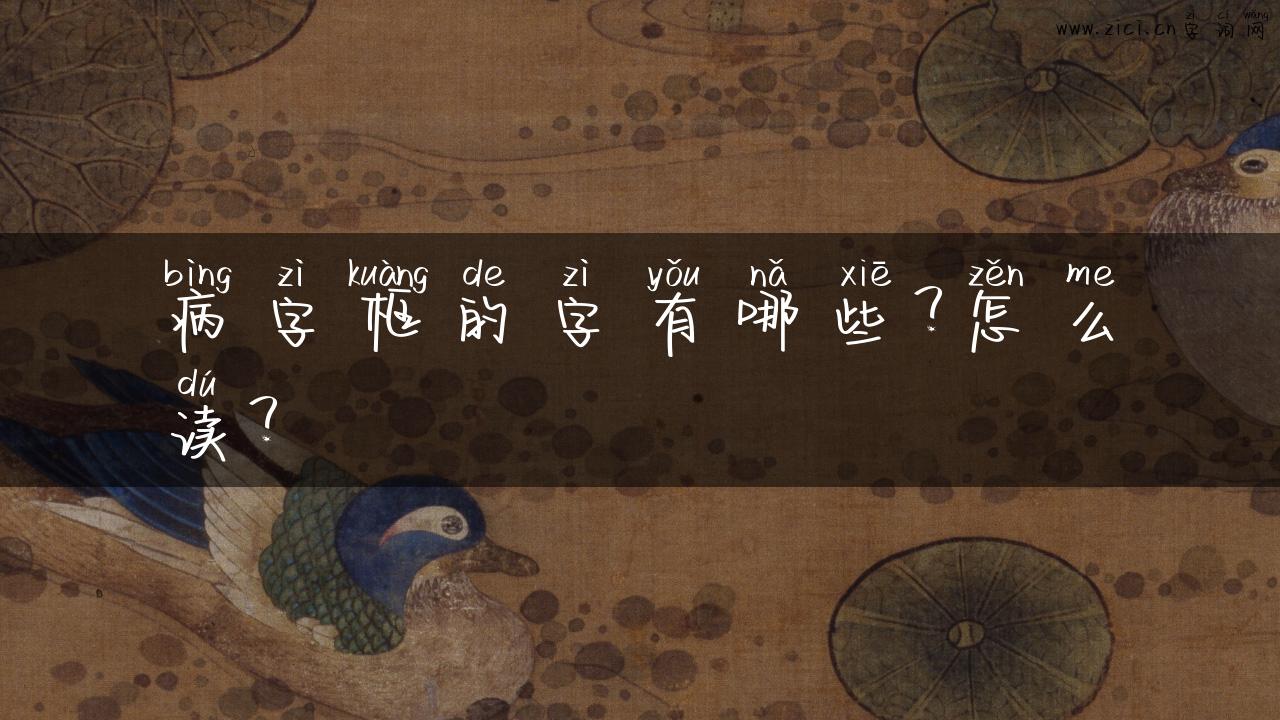 zì cí wǎng
www.zici.cn 字词网
bìng zì kuàng de zì yǒu nǎ xiē zěn me
病字框的字有哪些？怎么
dú
读？